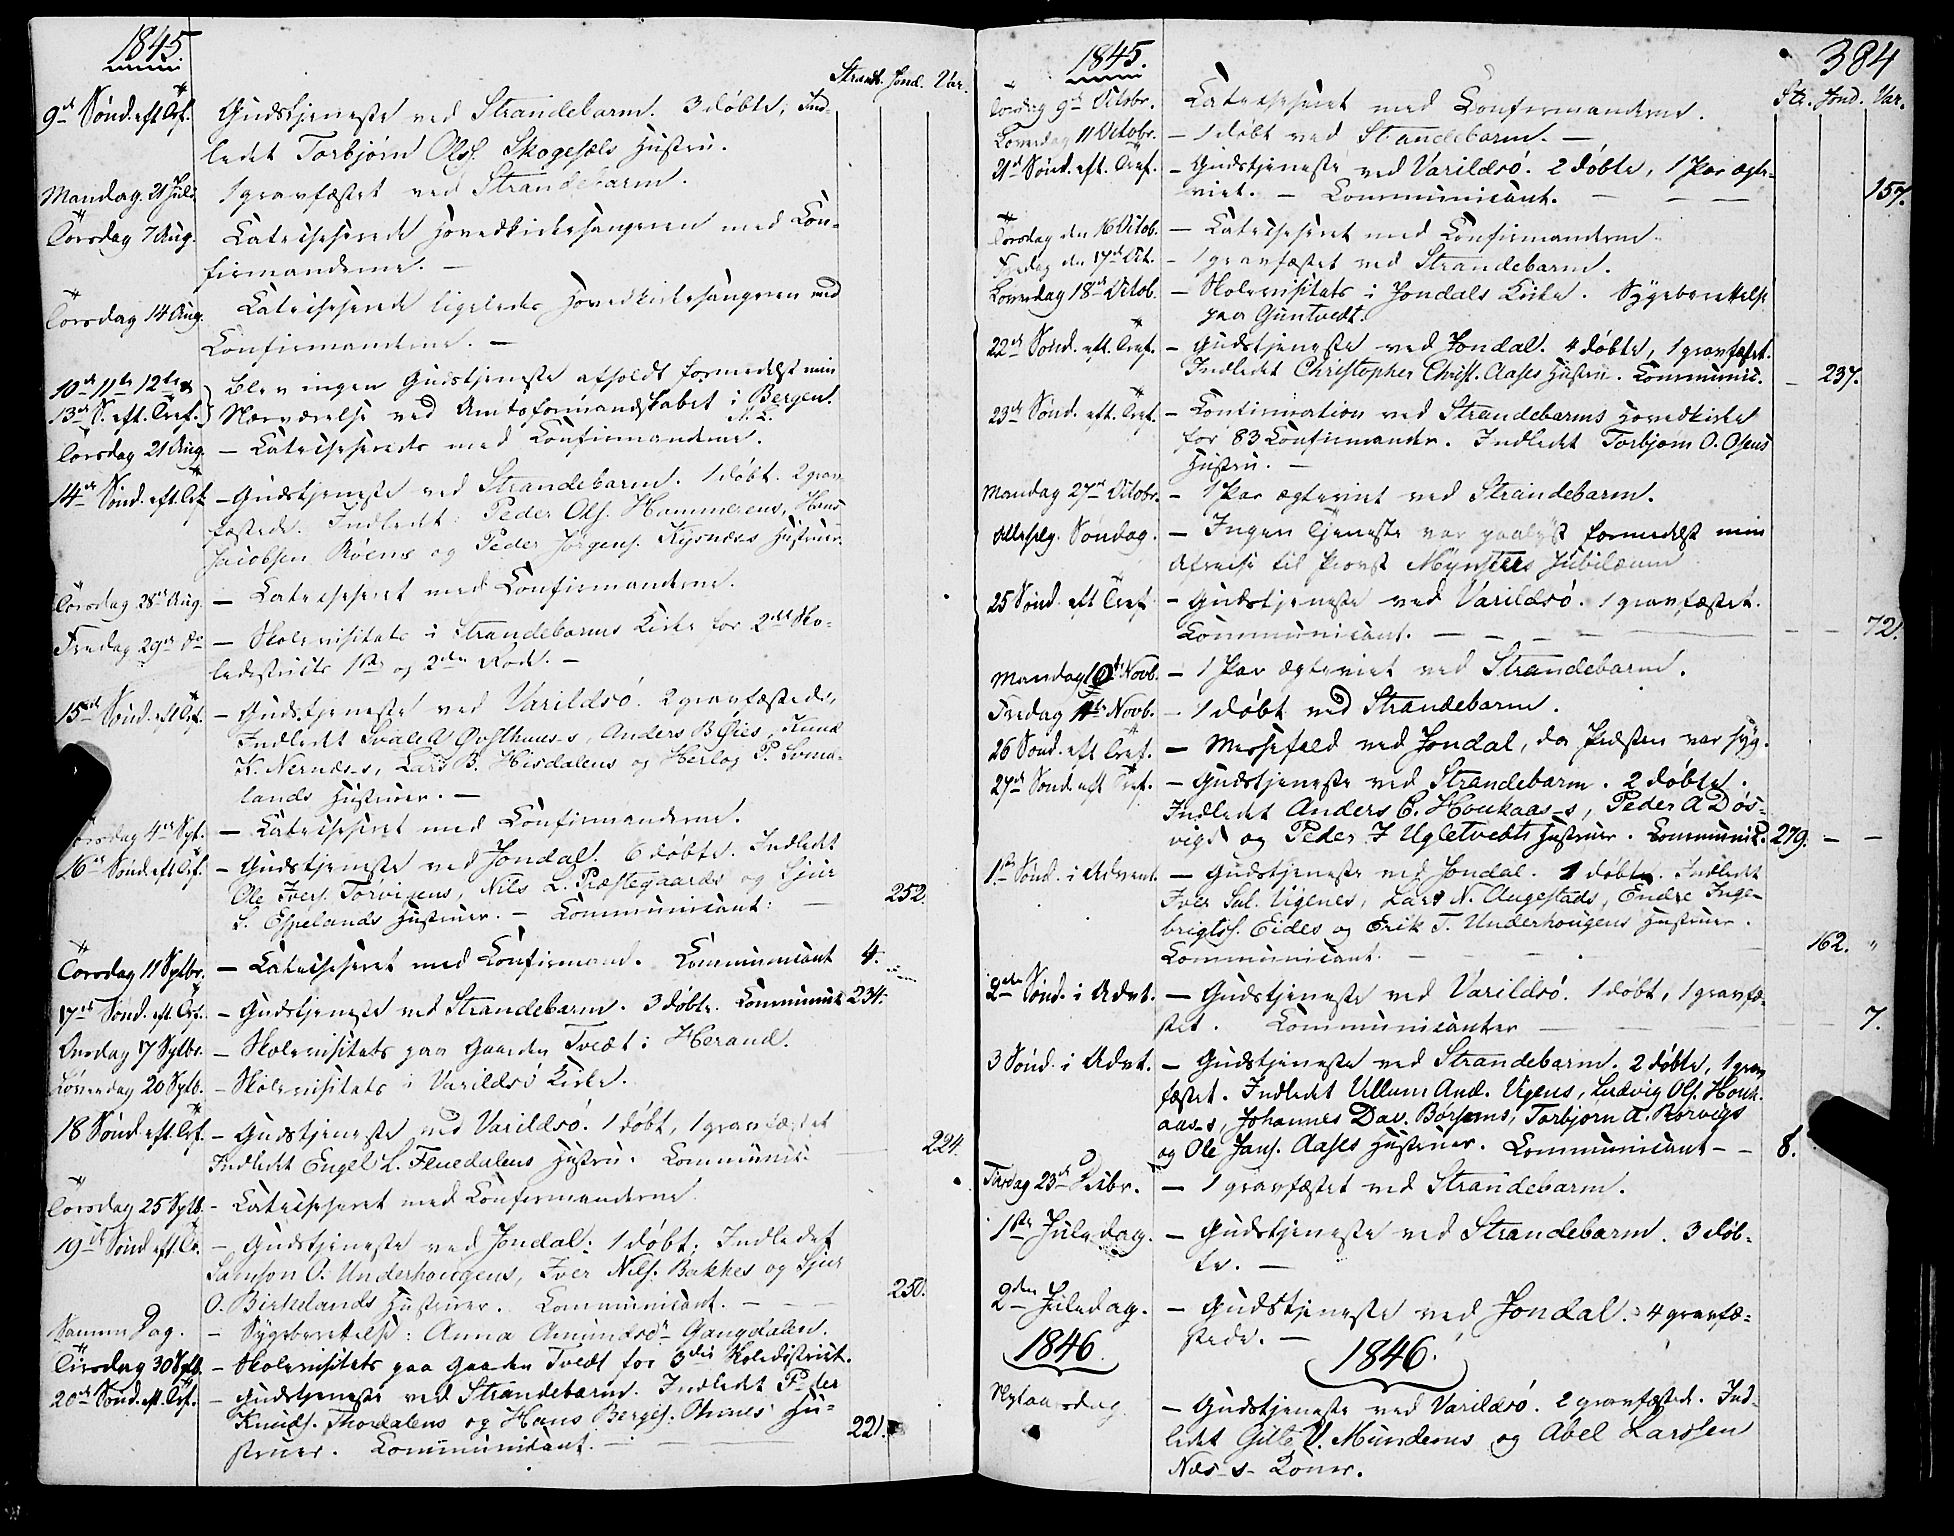 1845.
Strandb. Jond. Var.
9de Sønd. eft. Tref. Gudstjeneste ved Strandebarm. 3 døbte; Ind-
ledet Torbjørn Ols. Skogesæls Hustru.
Mandag 21 Juli 1 gravfæstet ved Strandebarm.
Torsdag 7 Aug. Catechiserede Hovedkirkesangeren med Con-
firmanderne. —
Torsdag 14 Aug. Catechiserede ligeledes Hovedkirkesangeren med
Confirmanderne. —
10de 11te 12te & Blev ingen Gudstjeneste afholdt formedelst min
13de S. eft. Tref. Nærværelse ved Amtsformandskabet i Bergen.
Torsdag 21 Aug. — Catechiserede med Confirmanderne.
14de Sønd. eft. Tref. — Gudstjeneste ved Strandebarm. 1 døbt. 2 grav-
fæstede. Indledet: Peder Ols. Hammerens, Hans
Jacobsen Røens og Peder Jørgens. Kysnæs Hustruer.
Torsdag 28de Aug. — Catechiseret med Confirmanderne.
Fredag 29de do — Skolevisitats i Strandebarms Kirke for 2det Sko-
ledistricts 1ste og 2den Rode. —
15de Sønd. eft. Tref. — Gudstjeneste ved Varildsö. 2 gravfæstede,
Indledet A Østhuus-s, Anders B Øies, Knud
K. Nernæs-s, Lars B. Hisdalens og Herlog P.
lands Hustruer. —
Torsdag 4de Sept. — Catechiseret med Confirmanderne.
16de Sønd. eft. Tref. — Gudstjeneste ved Jondal. 6 døbte. Indledet
Ole Ivers. Torvigens, Nils L. Præstegaards og Sjur
L. Espelands Hustruer. — Communicant: — 252.
Torsdag 11 Septbr. — Catechiseret med Confirmand. Communicant 4.
17de Sønd. eft. Tref. — Gudstjeneste ved Strandebarm. 3 døbte. Communic 234.
Onsdag 17 Septbr. — Skolevisitats paa Gaarden Tvedt i Herand.
Løverdag 20 Septb. — Skolevisitats i Varildsö Kirke.
18 Sønd. eft. Tref. — Gudstjeneste ved Varildsö. 1 døbt, 1 gravfæstet
Indledet Engel L. Fluedalens Hustru. Communic. — 224.
Torsdag 25 Septb. — Catechiseret med Confirmanderne.
19de Sønd. eft. Tr. — Gudstjeneste ved Jondal: 1 døbt; Indledet
Samson O. Underhougens, Iver Nils. Bakkes og Sjur
O. Birkelands Hustruer. Communicant. — 250.
Samme Dag. — Sygeberettelse: Anna Amundsdr Gangdalen.
Tirsdag 30 Septb. — Skolevisitats paa Gaarden Tvedt for 3die Skoledistrict.
20de Sønd. eft. Tref. — Gudstjeneste ved Strandebarm. Indledet Peder
Knuds. Thordalens og Hans Berges. Hu-
struer. Communicant. — 221.
1845.
384
Str. Jond. Var.
Torsdag 9de Octobr. Catechiseret med Confirmanderne.
Løverdag 11 Octobr. — 1 døbt ved Standebarm. —
21de Sønd. eft. Tref. — Gudstjeneste ved Varildsö. 2 døbte, 1 Par ægte-
viet. — Communicant. — 157.
Torsdag den 16 Octob. — Catechiseret med Confirmanderne.
Fredag den 17de Oct. — 1 gravfæstet ved Strandebarm.
Løverdag 18de Octob. — Skolevisitats i Jondals Kirke. Sygeberettelse
paa Guntvedt.
22de Sønd. eft. Tref. — Gudstjeneste ved Jondal. 4 døbte, 1 gravfæst.
Indledet Christopher Christ. Aases Hustru. Communic. — 237.
23de Sønd. eft. Tref. — Confirmation ved Strandebarms Hovedkirke
for 83 Confirmander. Indledet Torbjørn O. Osens
Hustru. —
Mandag 27de Octobr. — 1 Par ægteviet ved Strandebarm.
Allehelg. Søndag. — Ingen Tjeneste var paalyst formedelst min
Afreise til Provst Mynsters Jubilæum
25 Sønd. eft Tref. — Gudstjeneste ved Varildsö. 1 gravfæstet.
Communicant. — 72.
Mandag 10de Novb. — 1 Par ægteviet ved Strandebarm.
Fredag Novb. — 1 døbt ved Strandebarm.
26 Sønd. eft Tref. — Messefald ved Jondal, da Præsten var syg.
27de Sønd. eft Tref. — Gudstjeneste ved Strandebarm. 2 døbte.
Indledet Anders C. Houkaas-s, Peder A Døs-
vigs og Peder J Ugletvedts Hustruer. Communic. 279. — —
1ste Sønd. i Advent. — Gudstjeneste ved Jondal. 1 døbt. Indledet
Iver Sal. Vigenes, Lars N. Augestads, Endre Inge-
brigts. Eides og Erik T. Underhougens Hustruer.
Communicant. — 162. "
2den Sønd. i Advt. — Gudstjeneste ved Varildsö. 1 døbt, 1 gravfæ-
stet. Communicanter — 7.
3 Sønd. i Advt. — Gudstjeneste ved Strandebarm. 2 døbte, 1 grav
fæstet. Indledet Villum And. Vigens, Ludvig Ols. Houk-
aas-s, Johannes Dav. Børsems, Torbjørn A. Rørvigs
og Ole Jans. Aases Hustruer. Communicant — — 8.
Tirsdag 23de Decbr. — 1 gravfæstet ved Strandebarm.
1ste Juledag. — Gudstjeneste ved Strandebarm. 3 døb-
te. —
2den Juledag. — Gudstjeneste ved Jondal. 4 gravfæ-
stede. —
1846. 1846.
Nytaarsdag — Gudstjeneste ved Varildsö. 2 gravfæstede. Ind-
ledet Gitle V. Mundems og Abel Larssen
Næs-s- Koner.